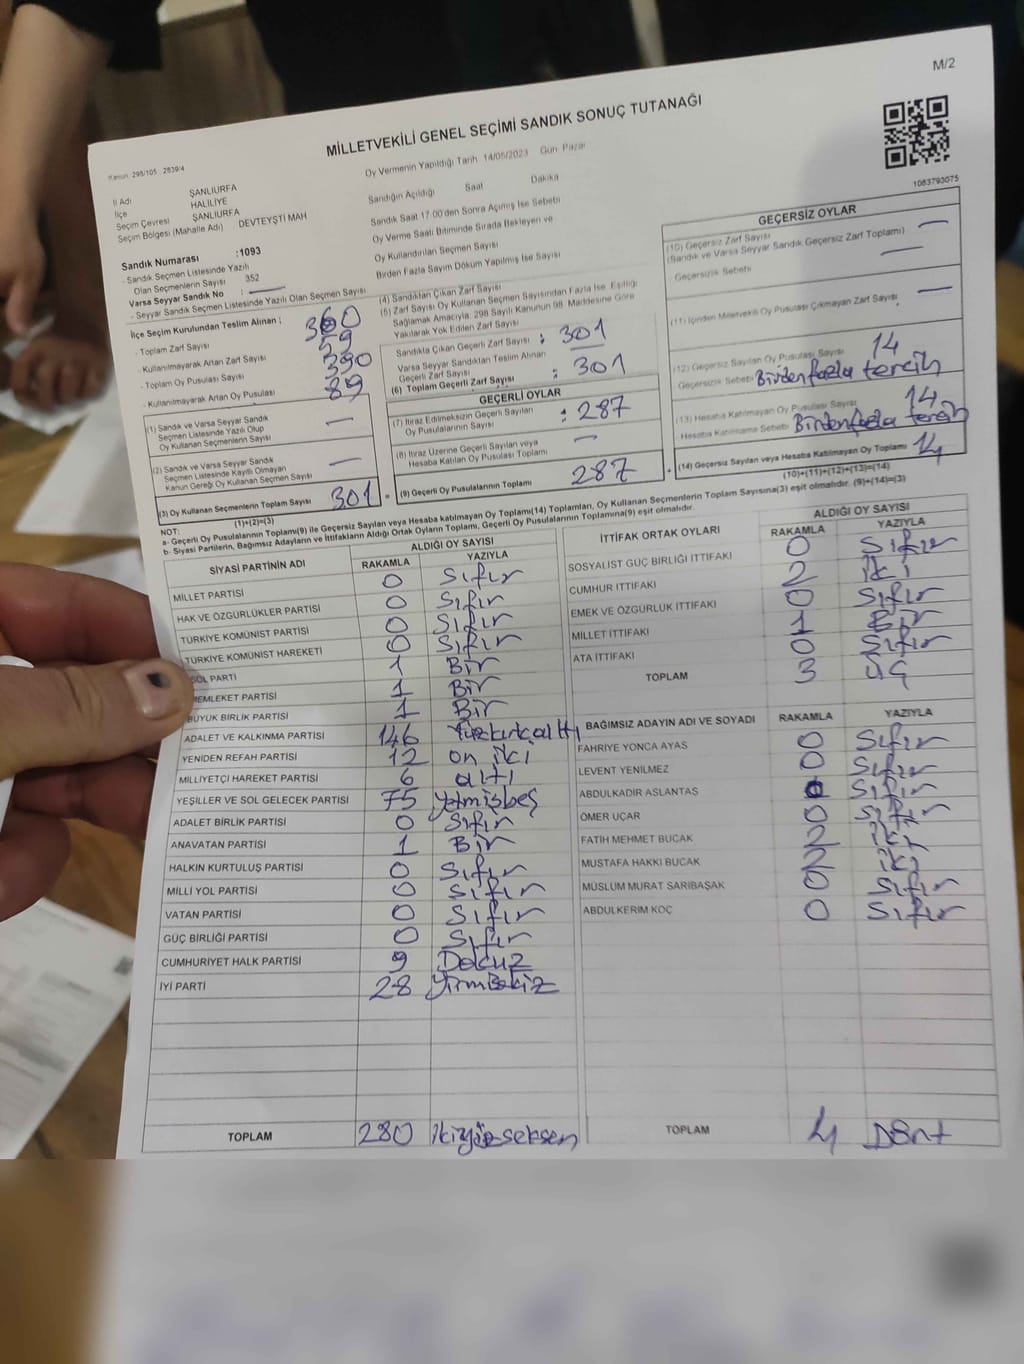 M/2
MİLLETVEKİLİ GENEL SEÇİMİ SANDIK SONUÇ TUTANAĞI
Kanun: 298/105 . 2839/4
1083793075
İl Adı ŞANLIURFA
İlçe HALİLİYE
Seçim Çevresi ŞANLIURFA
Seçim Bölgesi (Mahalle Adı) DEVTEYŞTİ MAH
Sandık Numarası :1093
- Sandık Seçmen Listesinde Yazılı
Olan Seçmenlerin Sayısı 352
Varsa Seyyar Sandık No : —
- Seyyar Sandık Seçmen Listesinde Yazılı Olan Seçmen Sayısı
İlçe Seçim Kurulundan Teslim Alınan :
- Toplam Zarf Sayısı 360
- Kullanılmayarak Artan Zarf Sayısı 59
- Toplam Oy Pusulası Sayısı 390
- Kullanılmayarak Artan Oy Pusulası 89
(1) Sandık ve Varsa Seyyar Sandık
Seçmen Listesinde Yazılı Olup
Oy Kullanan Seçmenlerin Sayısı —
(2) Sandık ve Varsa Seyyar Sandık
Seçmen Listesinde Kayıtlı Olmayan
Kanun Gereği Oy Kullanan Seçmen Sayısı —
(3) Oy Kullanan Seçmenlerin Toplam Sayısı 301
(1)+(2)=(3)
Oy Vermenin Yapıldığı Tarih 14/05/2023 Gün Pazar
Sandığın Açıldığı Saat Dakika
Sandık Saat 17:00'den Sonra Açımış İse Sebebi
Oy Verme Saati Bitiminde Sırada Bekleyen ve
Oy Kullandırılan Seçmen Sayısı
Birden Fazla Sayım Döküm Yapılmış İse Sayısı
(4) Sandıktan Çıkan Zarf Sayısı
(5) Zarf Sayısı Oy Kullanan Seçmen Sayısından Fazla İse, Eşitliği
Sağlamak Amacıyla, 298 Sayılı Kanunun 98. Maddesine Göre
Yakılarak Yok Edilen Zarf Sayısı
Sandıkta Çıkan Geçerli Zarf Sayısı : 301
Varsa Seyyar Sandıktan Teslim Alınan
Geçerli Zarf Sayısı
(6) Toplam Geçerli Zarf Sayısı : 301
GEÇERLİ OYLAR
(7) İtiraz Edilmeksizin Geçerli Sayılan
Oy Pusulalarının Sayısı : 287
(8) İtiraz Üzerine Geçerli Sayılan veya
Hesaba Katılan Oy Pusulası Toplamı —
(9) Geçerli Oy Pusulalarının Toplamı 287
GEÇERSİZ OYLAR
(10) Geçersiz Zarf Sayısı
(Sandık ve Varsa Seyyar Sandık Geçersiz Zarf Toplamı) —
Geçersizlik Sebebi —
(11) İçinden Milletvekili Oy Pusulası Çıkmayan Zarf Sayısı —
(12) Geçersiz Sayılan Oy Pusulası Sayısı 14
Geçersizlik Sebebi Birden fazla tercih
(13) Hesaba Katılmayan Oy Pusulası Sayısı 14
Hesaba Katılmama Sebebi Birden fazla tercih
(14) Geçersiz Sayılan veya Hesaba Katılmayan Oy Toplamı 14
(10)+(11)+(12)+(13)=(14)
NOT:
a- Geçerli Oy Pusulalarının Toplamı(9) ile Geçersiz Sayılan veya Hesaba katılmayan Oy Toplamı(14) Toplamları, Oy Kullanan Seçmenlerin Toplam Sayısına(3) eşit olmalıdır. (9)+(14)=(3)
b- Siyasi Partilerin, Bağımsız Adayların ve İttifakların Aldığı Ortak Oyların Toplamı, Geçerli Oy Pusulalarının Toplamına(9) eşit olmalıdır.
SİYASİ PARTİNİN ADI ALDIĞI OY SAYISI
RAKAMLA YAZIYLA
MİLLET PARTİSİ 0 Sıfır
HAK VE ÖZGÜRLÜKLER PARTİSİ 0 Sıfır
TÜRKİYE KOMÜNİST PARTİSİ 0 Sıfır
TÜRKİYE KOMÜNİST HAREKETİ 0 Sıfır
SOL PARTİ 1 Bir
MEMLEKET PARTİSİ 1 Bir
BÜYÜK BİRLİK PARTİSİ 1 Bir
ADALET VE KALKINMA PARTİSİ 146 Yüzkırkaltı
YENİDEN REFAH PARTİSİ 12 on iki
MİLLİYETÇİ HAREKET PARTİSİ 6 altı
YEŞİLLER VE SOL GELECEK PARTİSİ 75 Yetmişbeş
ADALET BİRLİK PARTİSİ 0 Sıfır
ANAVATAN PARTİSİ 1 Bir
HALKIN KURTULUŞ PARTİSİ 0 Sıfır
MİLLİ YOL PARTİSİ 0 Sıfır
VATAN PARTİSİ 0 Sıfır
GÜÇ BİRLİĞİ PARTİSİ 0 Sıfır
CUMHURİYET HALK PARTİSİ 9 Dokuz
İYİ PARTİ 28 Yirmisekiz
TOPLAM 280 İkiyüzseksen
İTTİFAK ORTAK OYLARI ALDIĞI OY SAYISI
RAKAMLA YAZIYLA
SOSYALİST GÜÇ BİRLİĞİ İTTİFAKI 0 Sıfır
CUMHUR İTTİFAKI 2 İki
EMEK VE ÖZGÜRLÜK İTTİFAKI 0 Sıfır
MİLLET İTTİFAKI 1 Bir
ATA İTTİFAKI 0 Sıfır
TOPLAM 3 ÜÇ
BAĞIMSIZ ADAYIN ADI VE SOYADI RAKAMLA YAZIYLA
FAHRİYE YONCA AYAS 0 Sıfır
LEVENT YENİLMEZ 0 Sıfır
ABDULKADİR ASLANTAŞ 0 Sıfır
ÖMER UÇAR 0 Sıfır
FATİH MEHMET BUCAK 2 iki
MUSTAFA HAKKI BUCAK 2 iki
MÜSLÜM MURAT SARIBAŞAK 0 Sıfır
ABDULKERİM KOÇ 0 Sıfır
TOPLAM 4 Dört